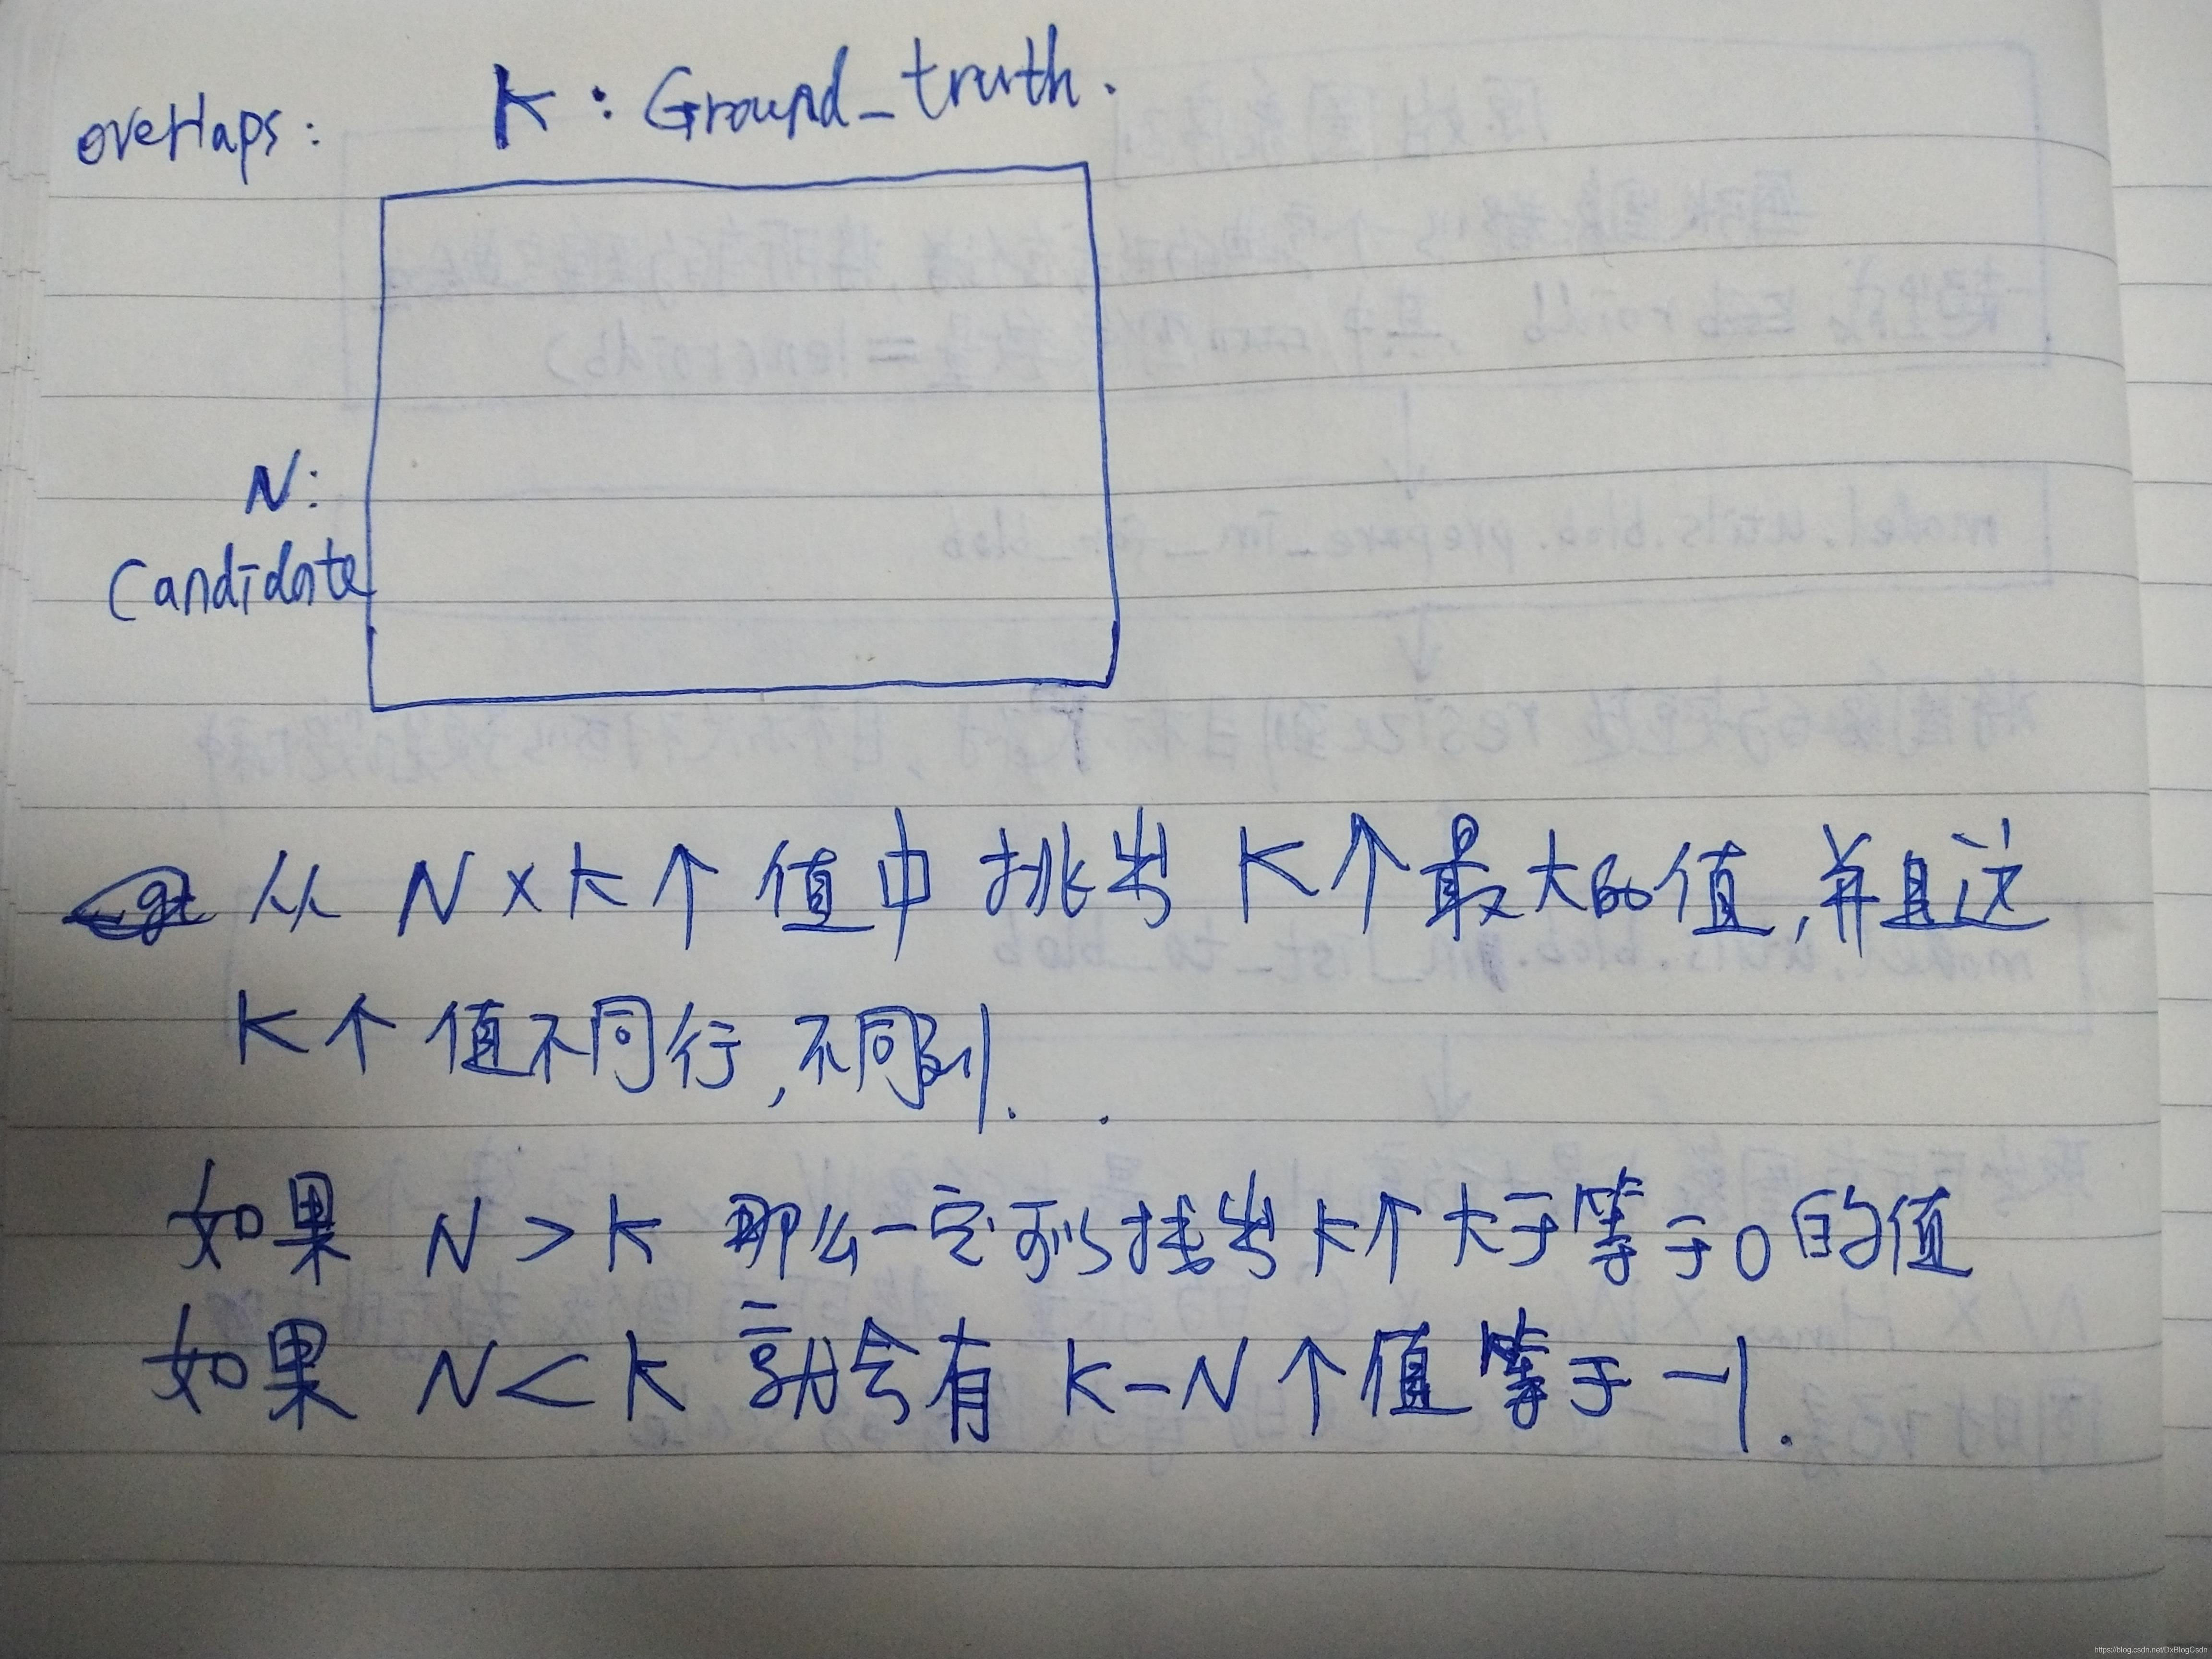 overlaps:
K: Ground_truth.
N:
Candidate
从 N×K个值中挑出 K个最大的值,并且这
K个值不同行,不同列.
如果 N>K 那么一定可以找出K个大于等于0的值
如果 N<K 就会有 K-N个值等于-1.
https://blog.csdn.net/DxBlogCsdn